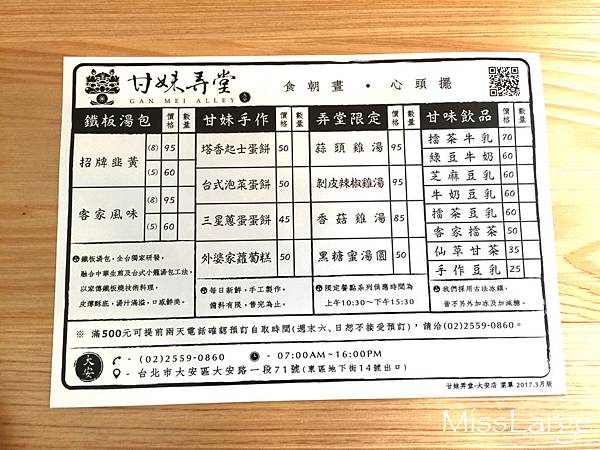 甘妹弄堂
GAN MEI ALLEY
食朝晝 • 心頭擺
鐵板湯包 價格 數量
招牌韭黃 (8) 95
(5) 60
客家風味 (8) 95
(5) 60
鐵板湯包,全台獨家研發,
融合中華生煎及台式小籠湯包工法,
以家傳鐵板燒技術料理,
皮薄酥底,湯汁滿溢,口感鮮美。
甘妹手作 價格 數量
塔香起士蛋餅 50
台式泡菜蛋餅 50
三星蔥蛋蛋餅 45
外婆家蘿蔔糕 50
每日新鮮,手工製作。
備料有限,售完為止。
弄堂限定 價格 數量
蒜頭雞湯 95
剝皮辣椒雞湯 95
香菇雞湯 85
黑糖蜜湯圓 50
限定餐點系列供應時間為
上午10:30~下午15:30
甘味飲品 價格 數量
擂茶牛乳 70
綠豆牛奶 60
芝麻豆乳 60
牛奶豆乳 60
擂茶豆乳 60
客家擂茶 50
仙草甘茶 35
手作豆乳 25
我們採用古法冰鎮,
皆不另外加冰及加減糖。
※ 滿500元可提前兩天電話確認預訂自取時間(週末六、日恕不接受預訂),請洽(02)2559-0860。
大安
- (02)2559-0860 - 07:00AM~16:00PM
- 台北市大安區大安路一段71號(東區地下街14號出口)
甘妹弄堂-大安店 菜單 2017.3月版
MissLarge